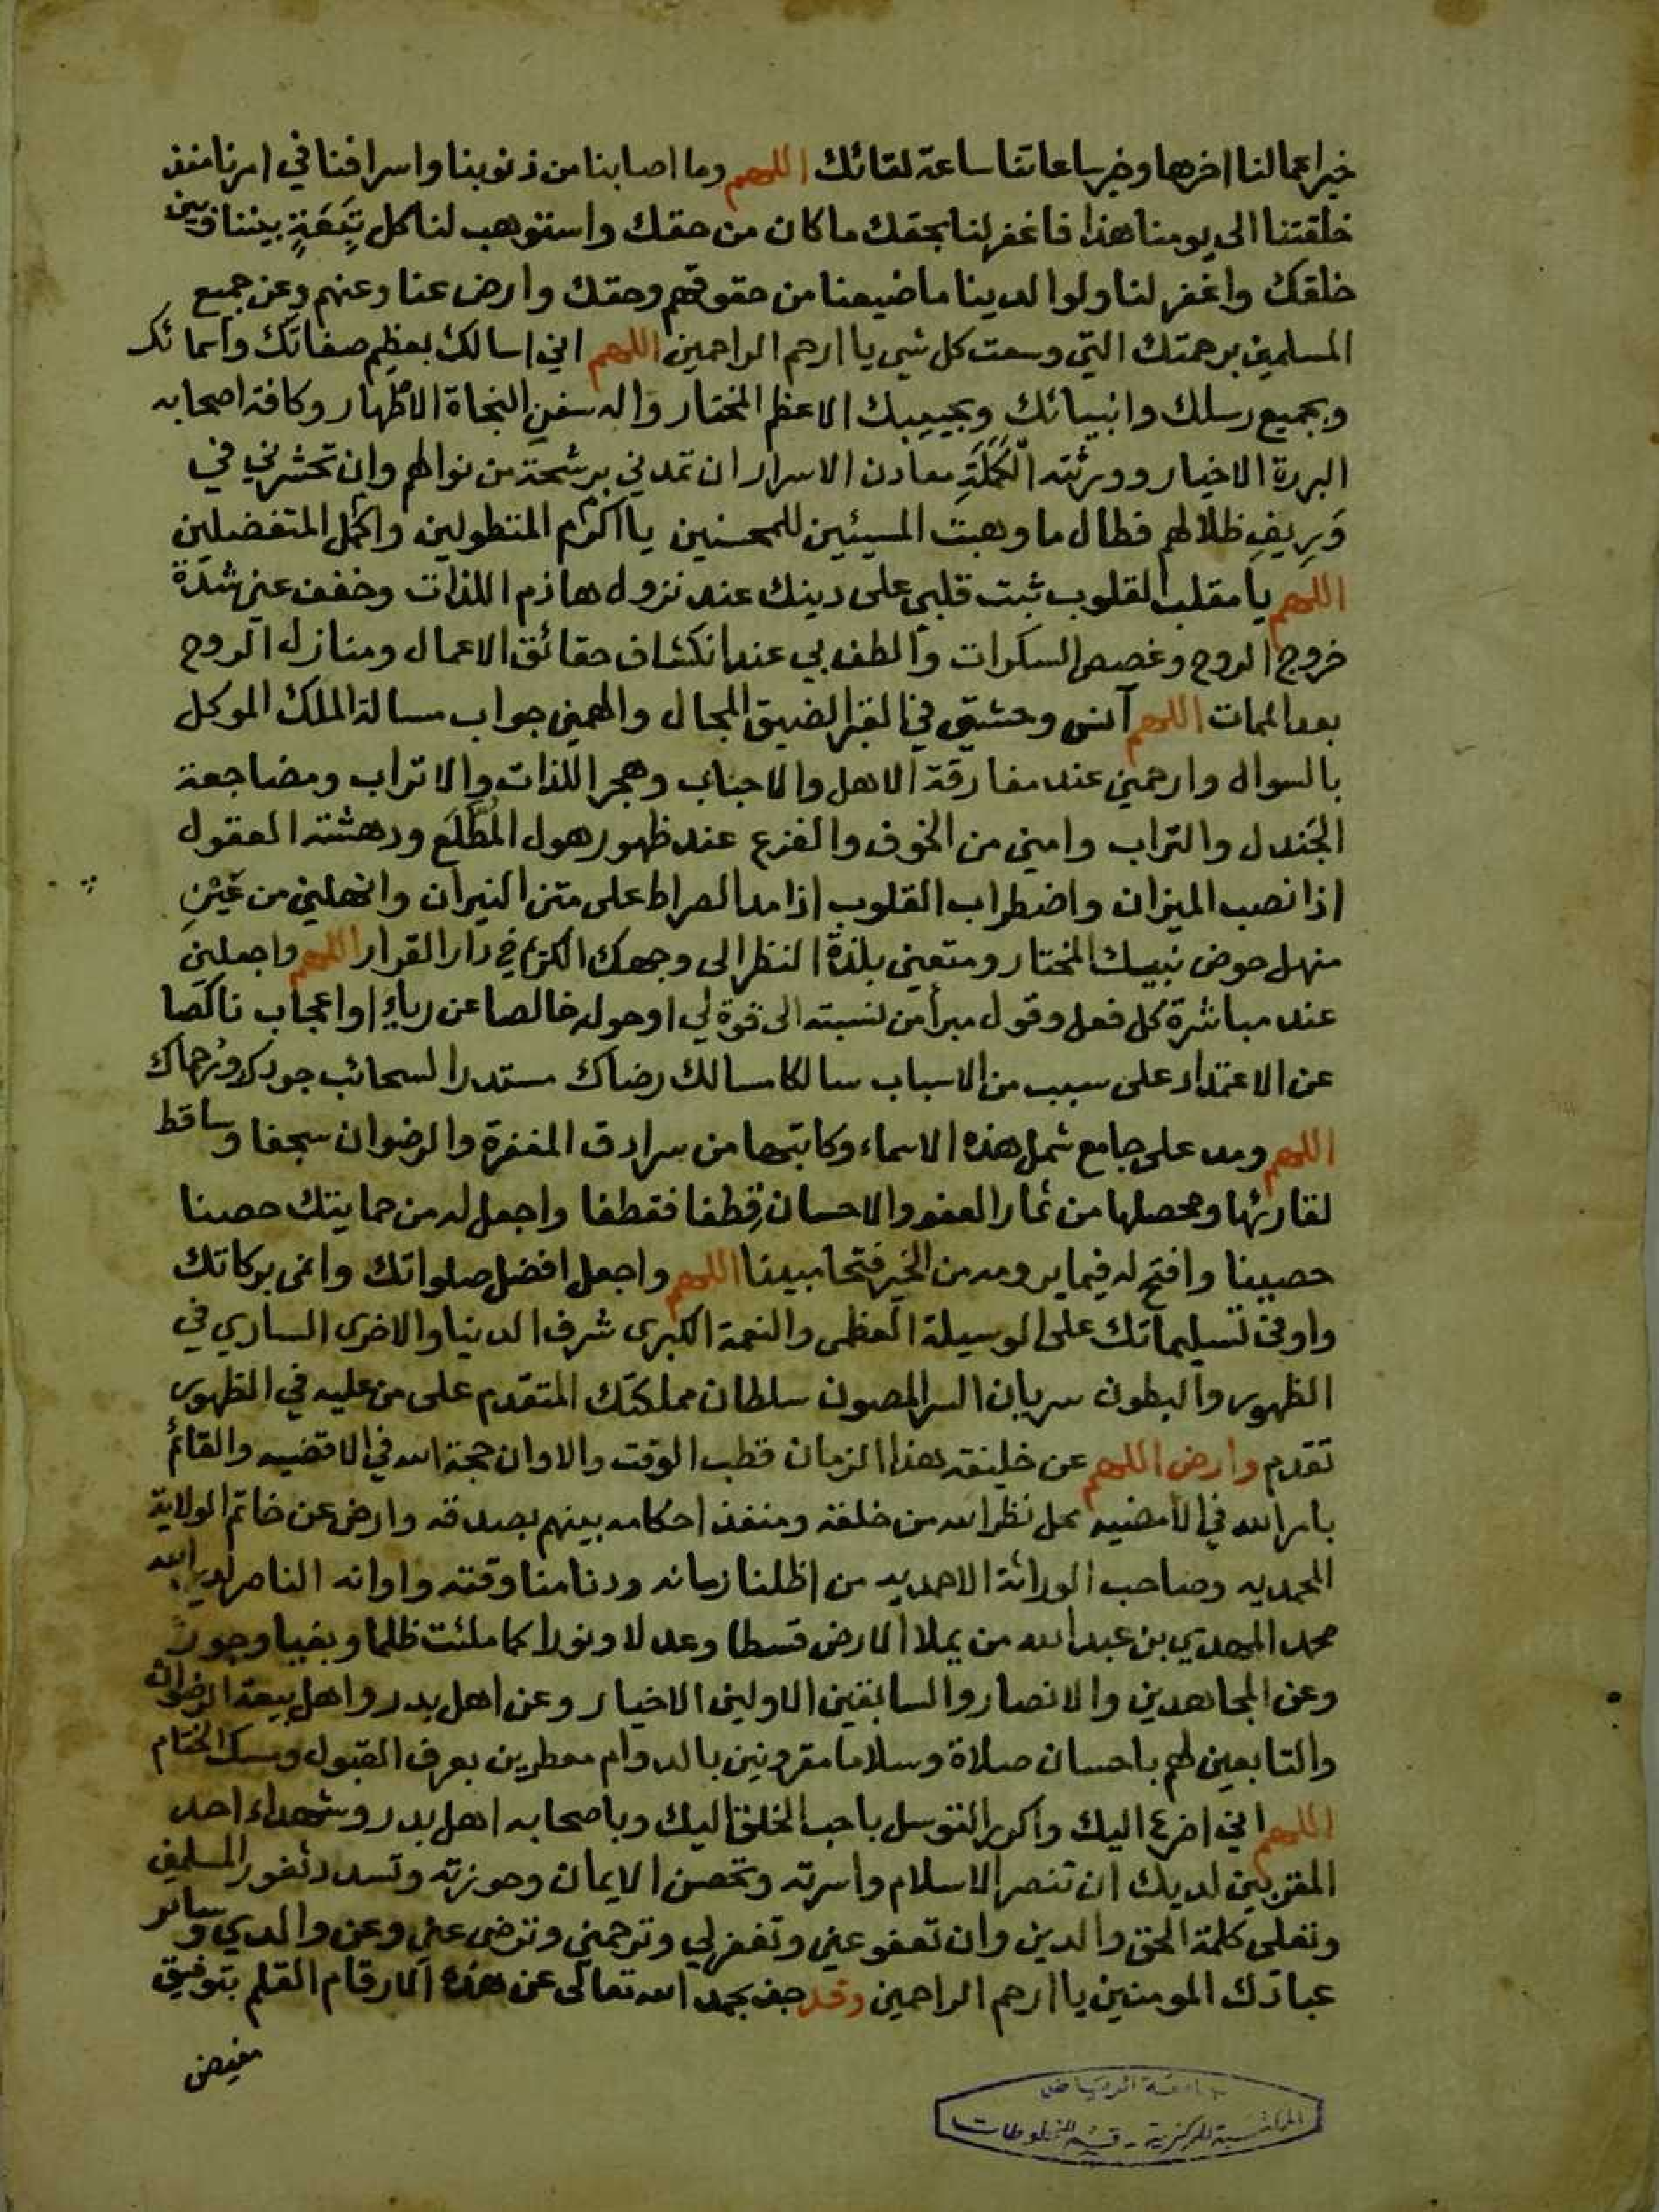 خير اعمالنا اخرها وخير ساعاتنا ساعة لقائك اللهم وما اصابنا من ذنوبنا واسرافنا في امرنا منذ
خلقتنا الى يومنا هذا فاغفر لنا بحقك ما كان من حقك واستوهب لنا كل تَبِعَةٍ بيننا وبين
خلقك واغفر لنا ولوالدينا ما ضيعنا من حقوقهم وحقك وارض عنا وعنهم وعن جميع
المسلمين برحمتك التي وسعت كل شي يا ارحم الراحمين اللهم اني اسالك بعظيم صفاتك واسمائك
وبجميع رسلك وانبيائك وبحبيبك الاعظم المختار واله سفن النجاة الاطهار وكافة اصحابه
البررة الاخيار وورثته الكَمَلَةِ معادن الاسرار ان تمدني برشحة من نوالهم وان تحشرني في
وَرِيفِ ظلالهم فطال ما وهبت المسيئين للمحسنين يا اكرم المتطولين واكمل المتفضلين
اللهم يا مقلب القلوب ثبت قلبي على دينك عند نزول هاذم اللذات وخفف عني شدة
خروج الروح وغصص السكرات والطف بي عند انكشاف حقائق الاعمال ومنازل الروح
بعد الممات اللهم آنس وحشتي في القبر الضيق المجال والهمني جواب مسالة الملك الموكل
بالسوال وارحمني عند مفارقة الاهل والاحباب وهجر اللذات والاتراب ومضاجعة
الجَندل والتراب وامني من الخوف والفزع عند ظهور هول المُطَّلَع ودهشة العقول
اذا نصب الميزان واضطراب القلوب اذا مد الصراط على متن النيران وانهلني من عَيْنِ
منهل حوض نبيك المختار ومتعني بلذة النظر الى وجهك الكريم في دار القرار اللهم واجعلني
عند مباشرة كل فعل وقول مبرأ من نسبته الى قوة لي او حول خالصا عن رياءٍ او اعجاب ناكصا
عن الاعتماد على سبب من الاسباب سالكا مسالك رضاك مستدرا لسحائب جودك ورحماك
اللهم ومد على جامع شمل هذه الاسماء وكاتبها من سرادق المغفرة والرضوان سجفا وساقط
لقارئها ومحصلها من ثمار العفو والاحسان قِطفا فقطفا واجعل له من حمايتك حصنا
حصينا وافتح له فيما يرومه من الخير فتحا مبينا اللهم واجعل افضل صلواتك وانمى بركاتك
واوفى تسليماتك على الوسيلة العظمى والنعمة الكبرى شرف الدنيا والاخرى الساري في
الظهور والبطون سريان السر المصون سلطان مملكتك المتقدم على من عليه في الظهور
تقدم وارض اللهم عن خليفة هذا الزمان قطب الوقت والاوان حجة الله في الاقضيه والقائم
بامر الله في الامضيه محل نظر الله من خلقه ومنفذ احكامه بينهم بصدقه وارض عن خاتم الولاية
المحمديه وصاحب الوراثة الاحمديه من اظلنا زمانه ودنا منا وقته واوانه الناصر لدين الله
محمد المهدي بن عبد الله من يملا الارض قسطا وعدلا ونورا كما ملئت ظلما وبغيا وجورا
وعن المجاهدين والانصار والسابقين الاولين الاخيار وعن اهل بدر واهل بيعة الرضوان
والتابعين لهم باحسان صلاة وسلاما مقرونين بالدوام معطرين بعرف القبول ومسك الختام
اللهم اني اضرع اليك واكرر التوسل باحب الخلق اليك وباصحابه اهل بدر وشهداء احد
المقربين لديك ان تنصر الاسلام واسرته وتحصن الايمان وحوزته وتسدد ثغور المسلمين
وتعلى كلمة الحق والدين وان تعفو عني وتغفر لي وترحمني وترضى عني وعن والدي وسائر
عبادك المومنين يا ارحم الراحمين وقد جف بحمد الله تعالى عن هذه الارقام القلم بتوفيق
مفيض
جامعة الرياض
المكتبة المركزية - قسم المخطوطات